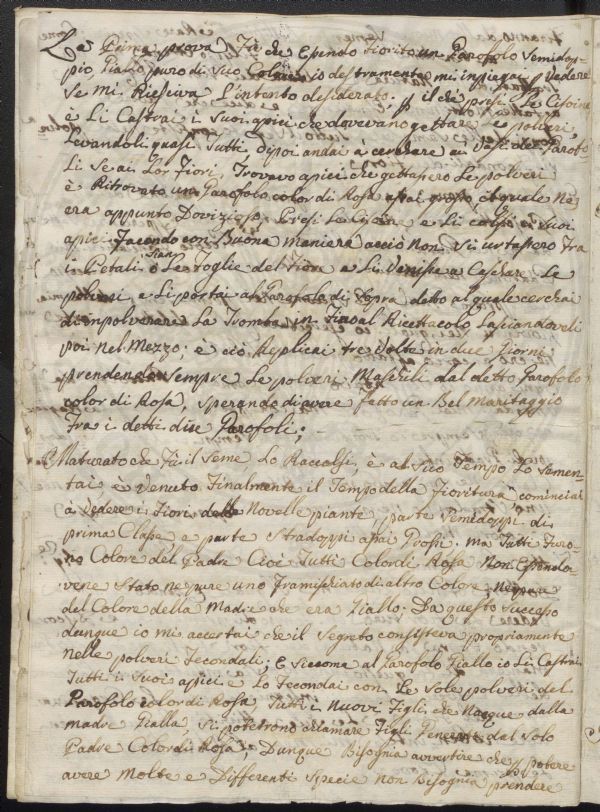 La Prima prova Fù che Essendo Fiorito un Garofolo Semidop-
pio, Giallo puro di Suo Colore io destramente mi inpiegai p Vedere
Se mi Riesciva L'intento desiderato; p il che presi Le Cisoine
e Li Castrai i Suoi apici che dovevano gettare Le polveri,
Levandoli quasi Tutti dipoi andai a cerchare ai Vasi de Garofo
Li Se ai Lor Fiori, Trovavo apici che gettassero Le polveri
è Ritrovato un Garofolo color di Rosa assai grosso il quale Ne
era appunto Dovizioso, Presi Le Cisoine e Li colsi i Suoi
apici Facendo con Buona maniera acciò Non Si urtassero Tra
i Petali ò Sian Le Foglie del Fiore e Li Venisse a Caschare Le
polveri, e Li portai al Garofolo di Sopra detto al quale cerchai
di inpolverare La Tromba in Sino al Ricettacolo Lasciandoveli
poi nel Mezzo; è ciò Replicai tre Volte in due Giorni
prendendo sempre Le polveri Maschili dal detto Garofolo
color di Rosa, Sperando di avere Fatto un Bel Maritaggio
Tra i detti due Garofoli;
Maturato che Fù il Seme Lo Raccolsi, è al Suo Tempo Lo Semen-
tai è Venuto Finalmente il Tempo della Fioritura cominciai
à Vedere i Fiori delle Novelle piante, parte Semidoppi di
prima Classe e parte Stradoppi assai Grossi. ma Tutti Furo-
no Colore del Padre Cioè Tutti Color di Rosa Non Essendo-
vene Stato ne pure uno Framischiato di altro Colore; Ne pure
del Colore della Madre che era Giallo; Da questo Successo
dunque io mi accertai che il Segreto consisteva propriamente
nelle polveri Fecondali; E Siccome al Garofolo Giallo io Li Castrai
Tutti i Suoi apici e Lo Fecondai con Le Sole polveri del
Garofolo color di Rosa, Tutti i Nuovi Figli che Nacque dalla
madre Gialla, Si potetrono chiamare Figli del Solo
Padre Color di Rosa; Dunque Bisognia avvertire che p potere
avere Molte e Differenti Specie non Bisognia prendere